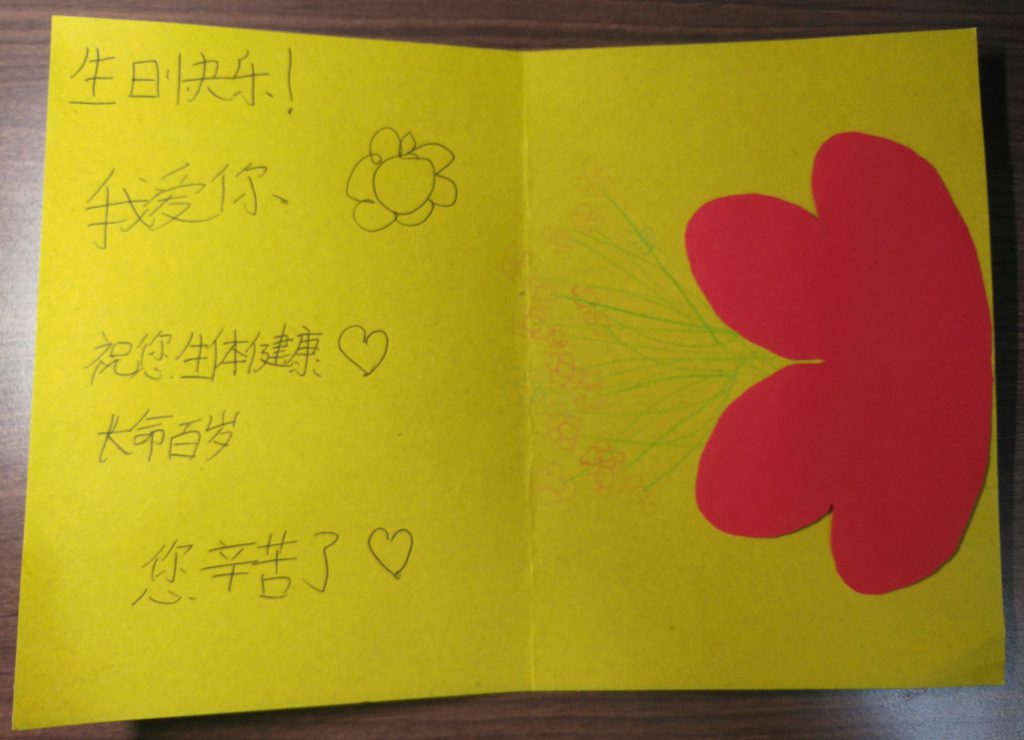 生日快乐!
我爱你
祝您生体健康
长命百岁
您辛苦了